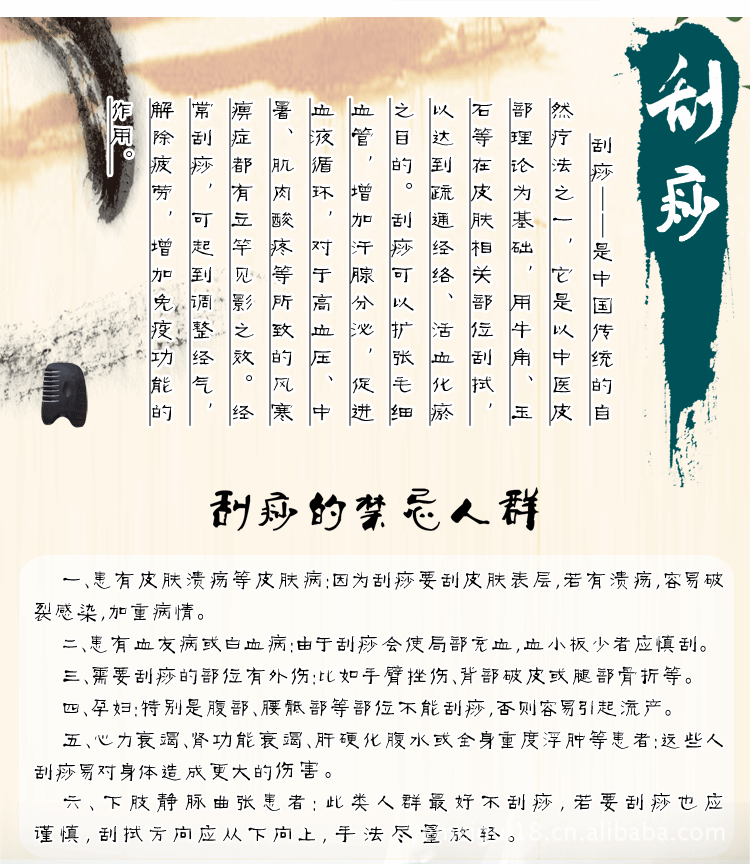 刮痧
刮痧——是中国传统的自
然疗法之一，它是以中医皮
部理论为基础，用牛角、玉
石等在皮肤相关部位刮拭，
以达到疏通经络、活血化瘀
之目的。刮痧可以扩张毛细
血管，增加汗腺分泌，促进
血液循环，对于高血压、中
暑、肌肉酸疼等所致的风寒
痹症都有立竿见影之效。经
常刮痧，可起到调整经气，
解除疲劳，增加免疫功能的
作用。
刮痧的禁忌人群
一、患有皮肤溃疡等皮肤病;因为刮痧要刮皮肤表层,若有溃疡,容易破
裂感染,加重病情。
二、患有血友病或白血病;由于刮痧会使局部充血,血小板少者应慎刮。
三、需要刮痧的部位有外伤;比如手臂挫伤、背部破皮或腿部骨折等。
四、孕妇;特别是腹部、腰骶部等部位不能刮痧,否则容易引起流产。
五、心力衰竭、肾功能衰竭、肝硬化腹水或全身重度浮肿等患者;这些人
刮痧易对身体造成更大的伤害。
六、下肢静脉曲张患者;此类人群最好不刮痧,若要刮痧也应
谨慎,刮拭方向应从下向上,手法尽量放轻。
18.cn.alibaba.com